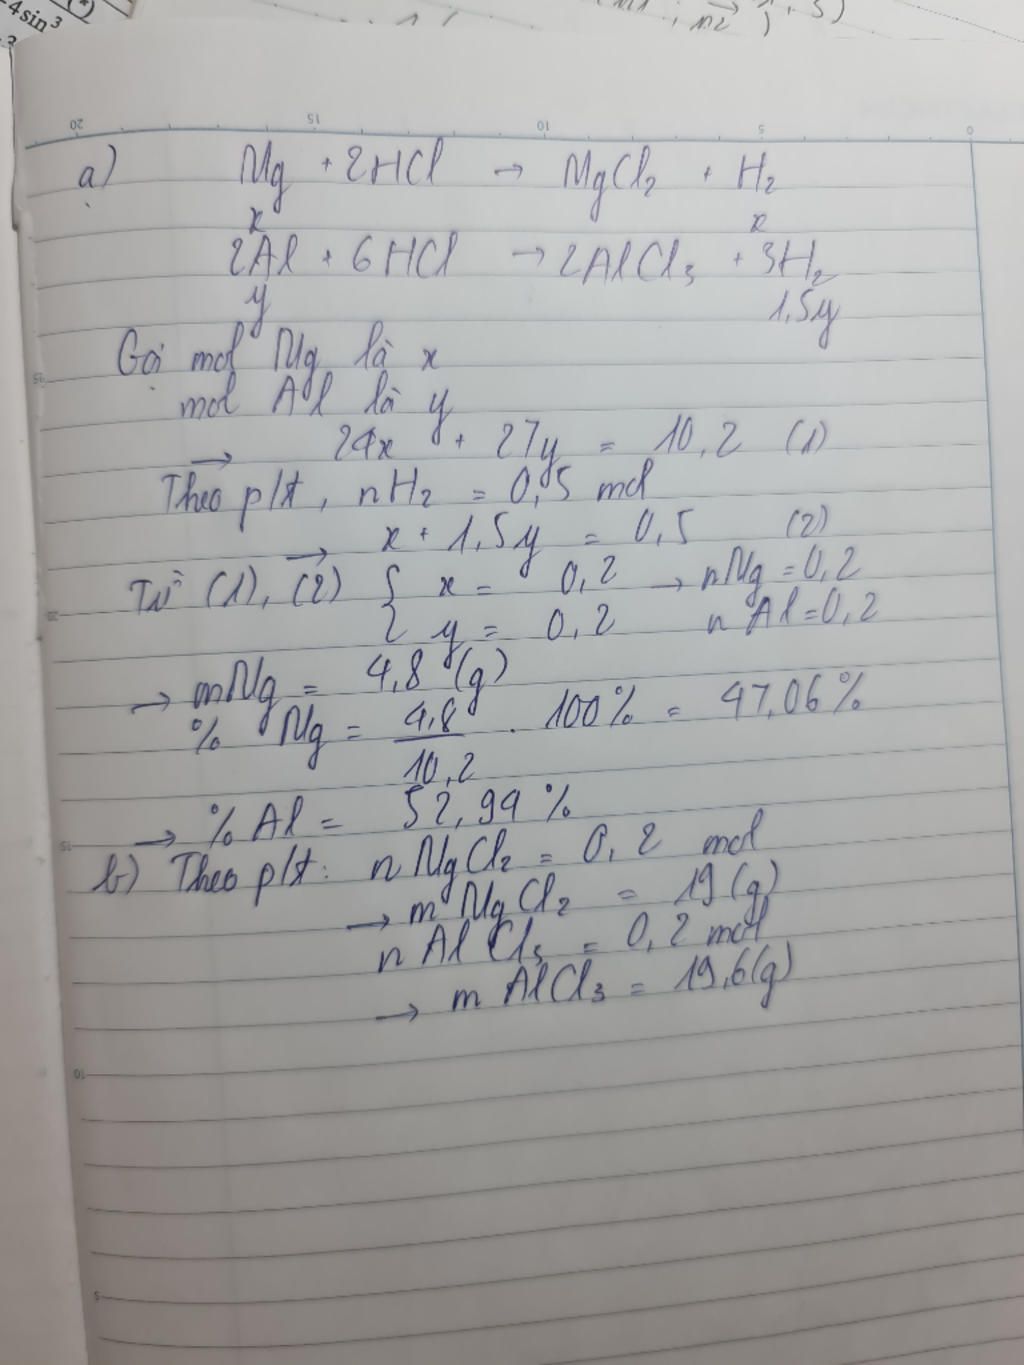 4sin³
(*)
20 15 10 5 0
a) Mg + 2HCl → MgCl₂ + H₂
x x
2Al + 6HCl → 2AlCl₃ + 3H₂
y 1,5y
Gọi mol Mg là x
mol Al là y
→ 24x + 27y = 10,2 (1)
Theo ptpt, nH₂ = 0,5 mol
→ x + 1,5y = 0,5 (2)
Từ (1), (2) { x = 0,2 → nMg = 0,2
y = 0,2 nAl = 0,2
→ mMg = 4,8 (g)
% Mg = 4,8/10,2 . 100% = 47,06%
→ % Al = 52,94 %
b) Theo pt: nMgCl₂ = 0,2 mol
→ mMgCl₂ = 19 (g)
nAlCl₃ = 0,2 mol
→ mAlCl₃ = 19,6(g)
10
5